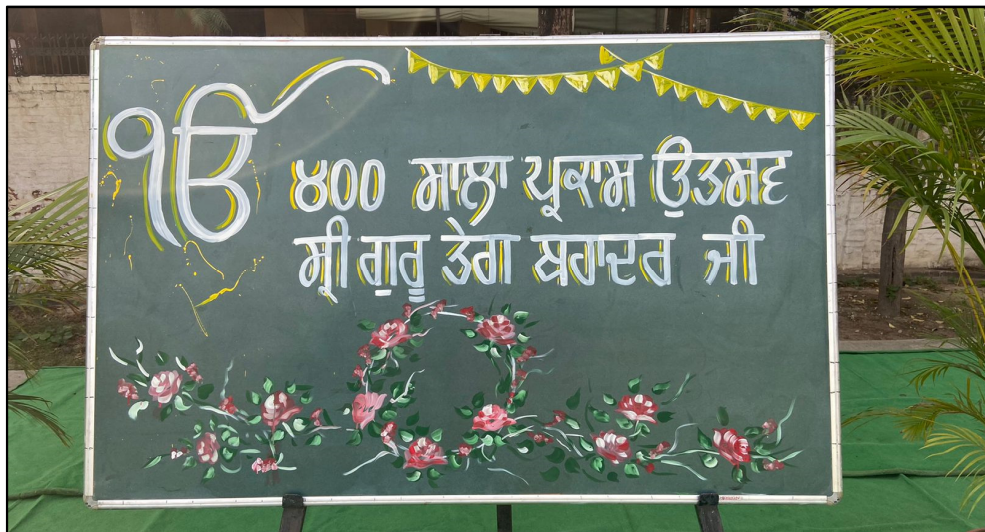 ੴ
੪੦੦ ਸਾਲਾ ਪ੍ਰਕਾਸ਼ ਉਤਸਵ
ਸ੍ਰੀ ਗੁਰੂ ਤੇਗ ਬਹਾਦਰ ਜੀ